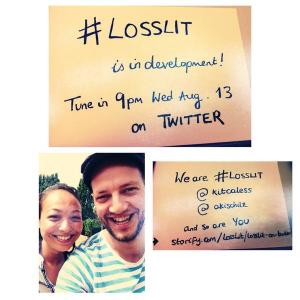 #LOSSLIT
is in development!
Tune in 9pm Wed Aug. 13
on TWITTER
We are #LOSSLIT
@kitcaless
@akischilz
and so are You
storify.com/LossLit/losslit-on-